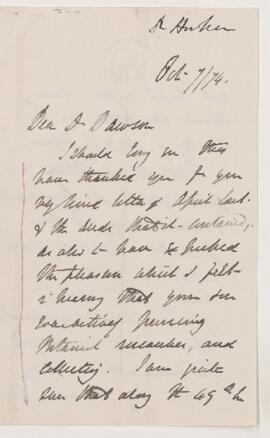 Dr Hooker
Oct 7/74.
Dear Dr Dawson
I should long ere this
have thanked you for your
very kind letter of April last
& the seeds that it contained,
as also to have expressed
the pleasure which I felt
in hearing that your son
was actively pursuing
botanical researches, and
collecting. I am quite
sure that along the 49th